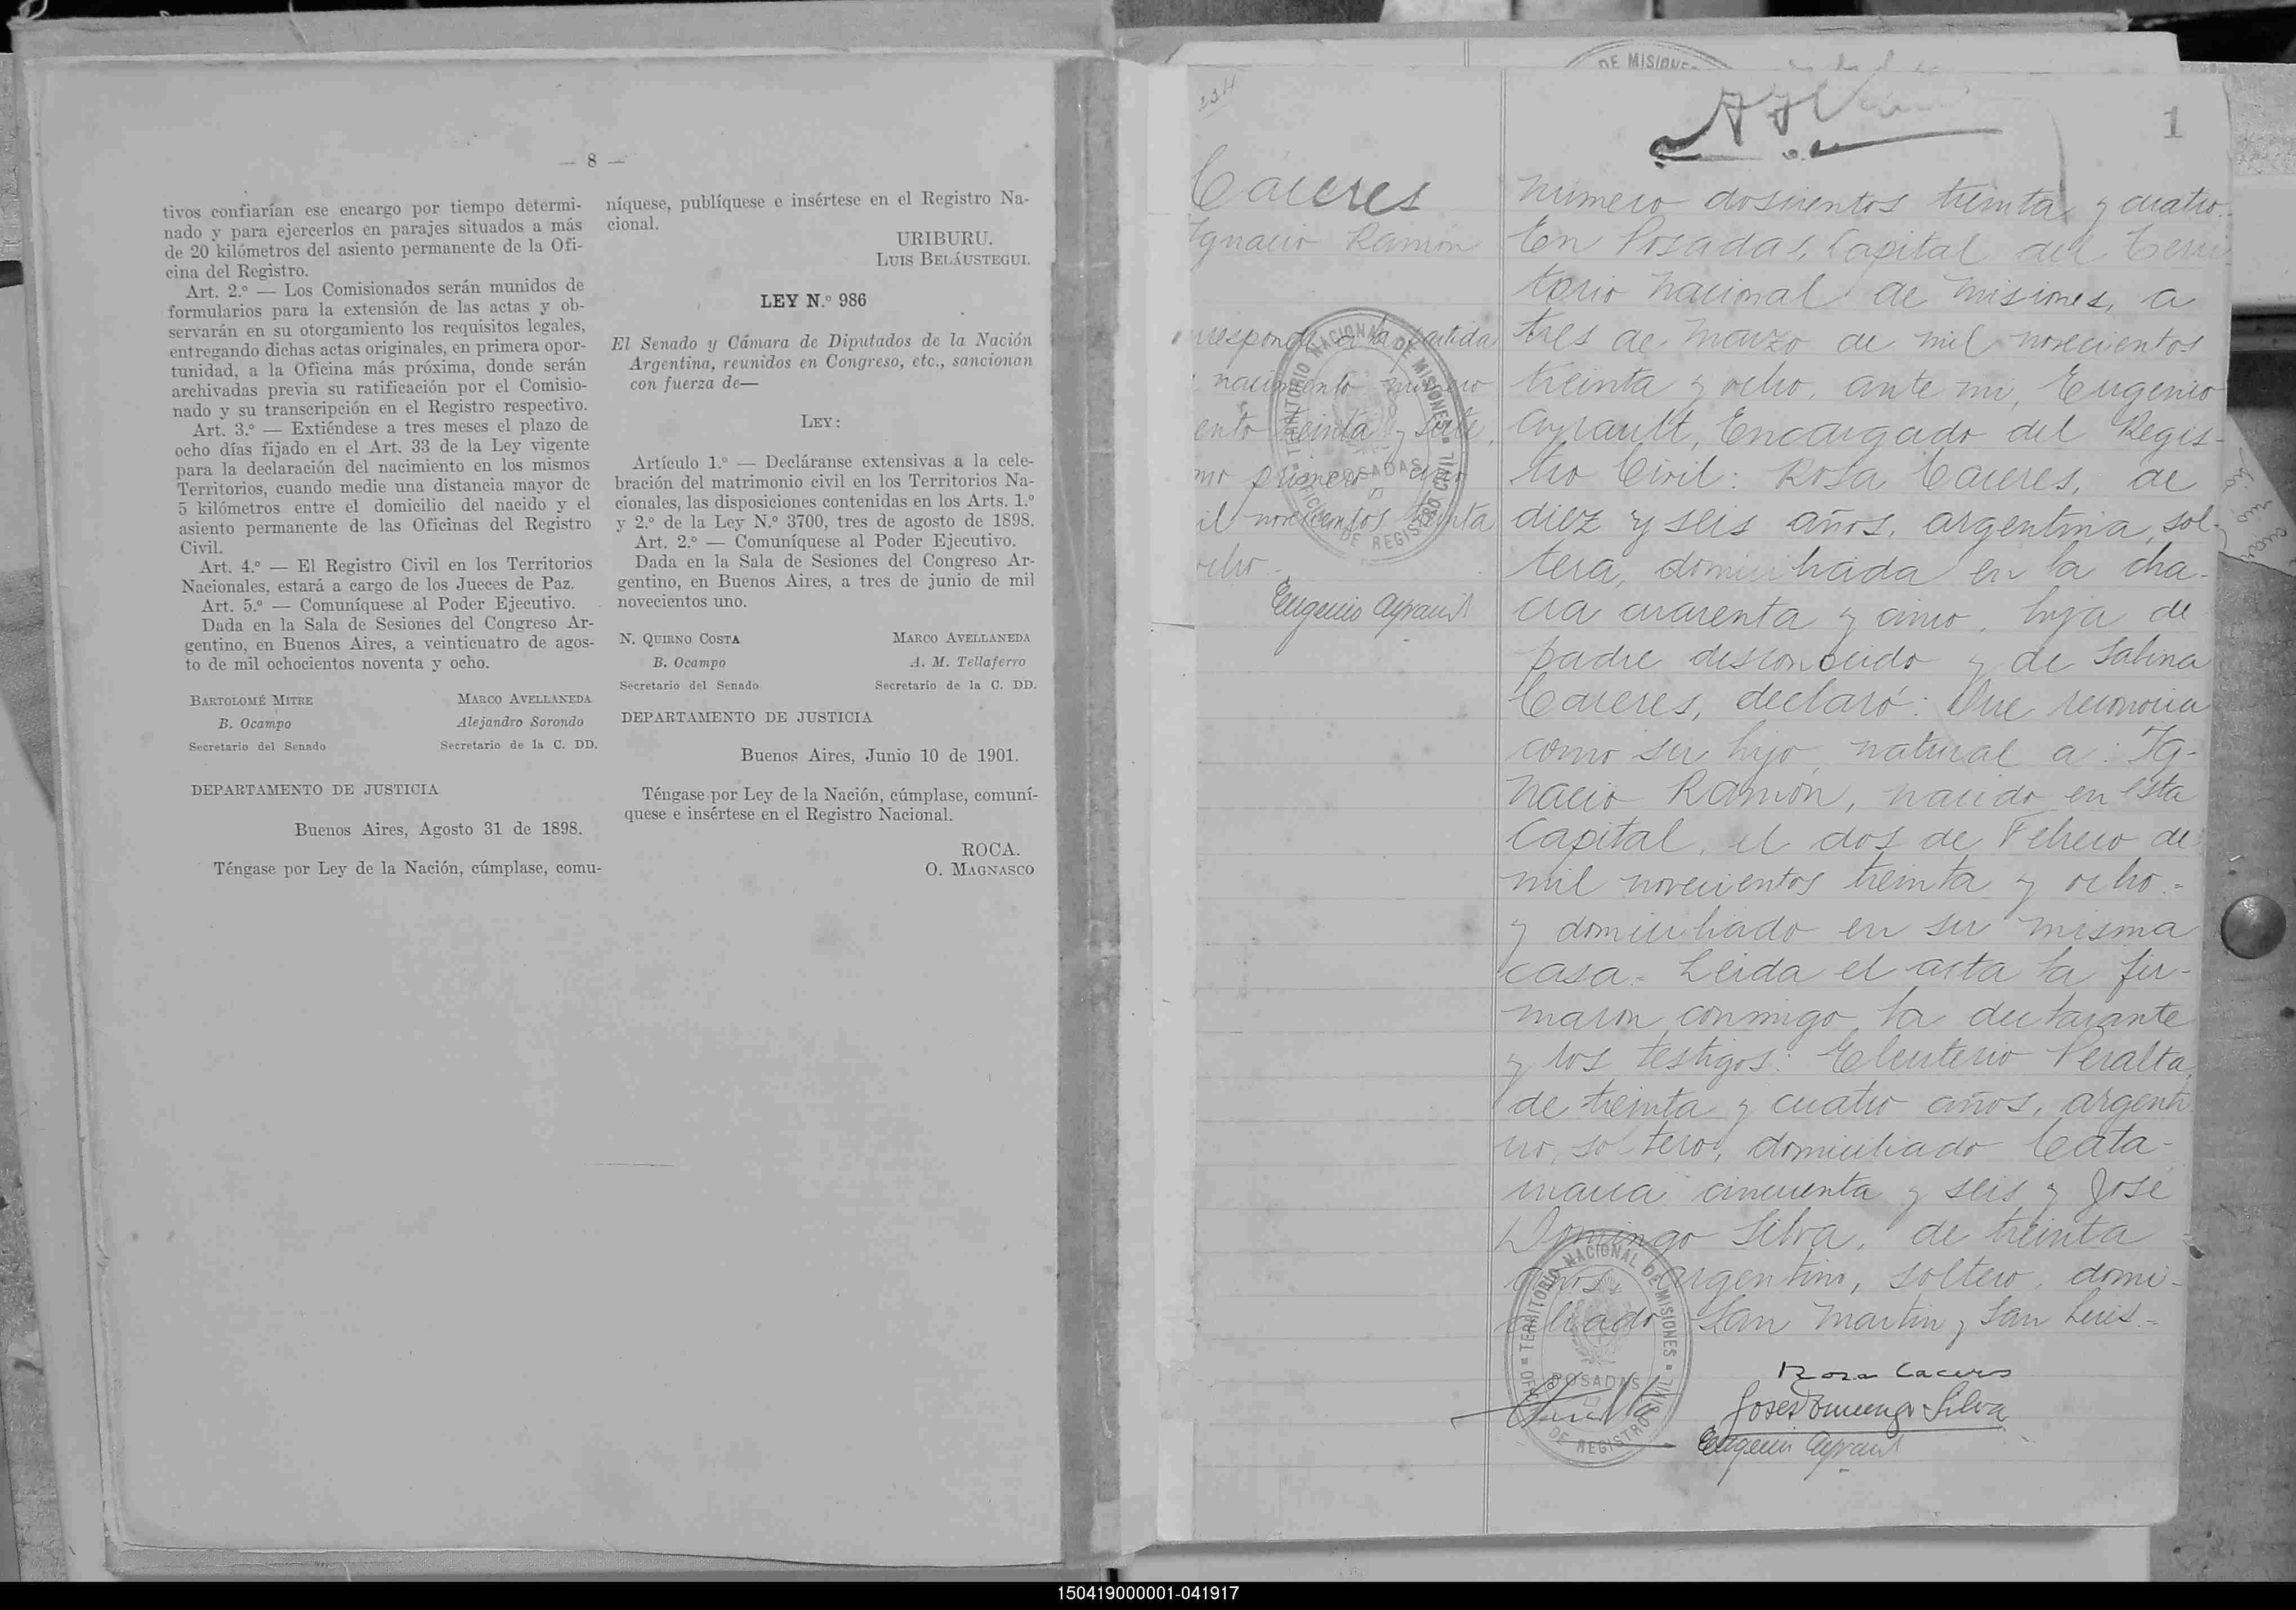 — 8 —
tivos confiarían ese encargo por tiempo determi-
nado y para ejercerlos en parajes situados a más
de 20 kilómetros del asiento permanente de la Ofi-
cina del Registro.
Art. 2.º — Los Comisionados serán munidos de
formularios para la extensión de las actas y ob-
servarán en su otorgamiento los requisitos legales,
entregando dichas actas originales, en primera opor-
tunidad, a la Oficina más próxima, donde serán
archivadas previa su ratificación por el Comisio-
nado y su transcripción en el Registro respectivo.
Art. 3.º — Extiéndese a tres meses el plazo de
ocho días fijado en el Art. 33 de la Ley vigente
para la declaración del nacimiento en los mismos
Territorios, cuando medie una distancia mayor de
5 kilómetros entre el domicilio del nacido y el
asiento permanente de las Oficinas del Registro
Civil.
Art. 4.º — El Registro Civil en los Territorios
Nacionales, estará a cargo de los Jueces de Paz.
Art. 5.º — Comuníquese al Poder Ejecutivo.
Dada en la Sala de Sesiones del Congreso Ar-
gentino, en Buenos Aires, a veinticuatro de agos-
to de mil ochocientos noventa y ocho.
BARTOLOMÉ MITRE MARCO AVELLANEDA
B. Ocampo Alejandro Sorondo
Secretario del Senado Secretario de la C. DD.
DEPARTAMENTO DE JUSTICIA
Buenos Aires, Agosto 31 de 1898.
Téngase por Ley de la Nación, cúmplase, comu-
níquese, publíquese e insértese en el Registro Na-
cional.
URIBURU.
LUIS BELÁUSTEGUI.
LEY N.º 986
El Senado y Cámara de Diputados de la Nación
Argentina, reunidos en Congreso, etc., sancionan
con fuerza de—
LEY:
Artículo 1.º — Decláranse extensivas a la cele-
bración del matrimonio civil en los Territorios Na-
cionales, las disposiciones contenidas en los Arts. 1.º
y 2.º de la Ley N.º 3700, tres de agosto de 1898.
Art. 2.º — Comuníquese al Poder Ejecutivo.
Dada en la Sala de Sesiones del Congreso Ar-
gentino, en Buenos Aires, a tres de junio de mil
novecientos uno.
N. QUIRNO COSTA MARCO AVELLANEDA
B. Ocampo A. M. Tallaferro
Secretario del Senado Secretario de la C. DD.
DEPARTAMENTO DE JUSTICIA
Buenos Aires, Junio 10 de 1901.
Téngase por Ley de la Nación, cúmplase, comuní-
quese e insértese en el Registro Nacional.
ROCA.
O. MAGNASCO
DE MISIONES
234
1
Caceres
Ignacio Ramón
rresponde a la partida
nacimiento número
ento treinta y siete,
mo primero año
il novecientos treinta
ocho.-
Eugenio Ayrault
TERRITORIO NACIONAL DE MISIONES
POSADAS
OFICINA DE REGISTRO CIVIL
Número doscientos treinta y cuatro.-
En Posadas, Capital del Terri-
torio Nacional de Misiones, a
tres de Marzo de mil novecientos
treinta y ocho, ante mi, Eugenio
Ayrault, Encargado del Regis-
tro Civil: Rosa Caceres, de
diez y seis años, argentina, sol-
tera, domiciliada en la cha-
cra cuarenta y cinco, hija de
padre desconocido y de Sabina
Caceres, declaró: Que reconocia
como su hijo natural a: Ig-
nacio Ramón, nacido en esta
Capital, el dos de Febrero de
mil novecientos treinta y ocho.-
y domiciliado en su misma
casa.- Leida el acta la fir-
maron conmigo, la declarante
y los testigos: Eleuterio Peralta,
de treinta y cuatro años, argenti
no, soltero, domiciliado Cata-
marca cincuenta y seis y José
Domingo Silva, de treinta
años, argentino, soltero, domi-
ciliado San Martin y San Luis.-
Rosa Caceres
Jose Domingo Silva
Eugenio Ayrault
TERRITORIO NACIONAL DE MISIONES
POSADAS
OFICINA DE REGISTRO CIVIL
150419000001-041917